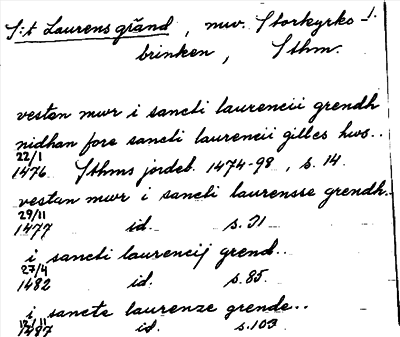 S:t Laurens gränd, nuv. Storkyrko-
brinken, Sthm.
vestan mwr i sancti laurencii grendh
nidhan fore sancti laurencii gilles hws..
22/1
1476 Sthms jordeb. 1474-98, s. 14.
vestan mwr i sancti laurensse grendh..
29/11
1477 id. s. 31
i sancti laurencij grend..
27/4
1482 id. s. 85.
i sancte laurenze grende..
1487 id. s. 103